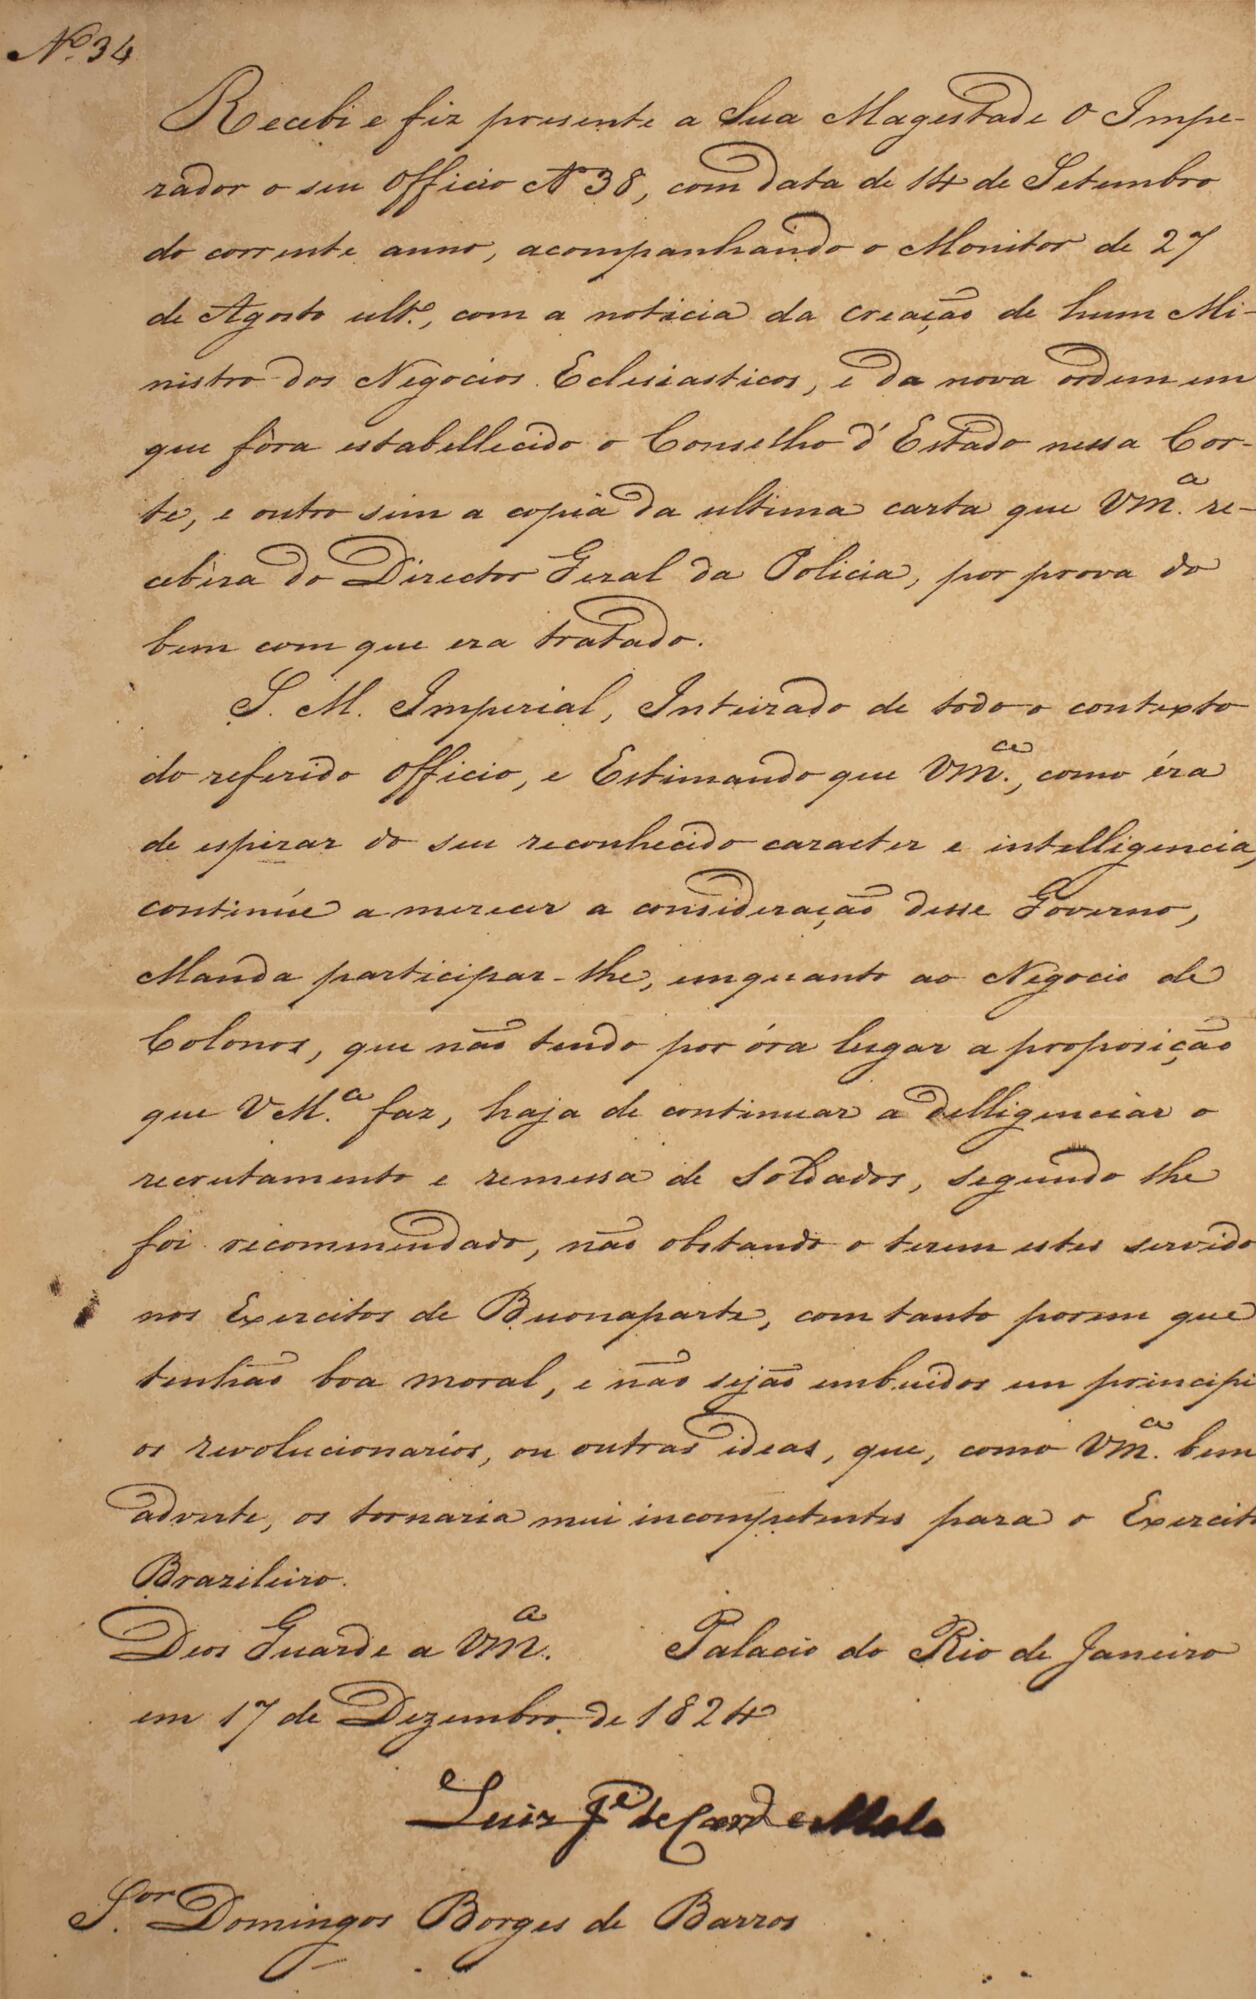 Nº 34
Recebi e fiz presente a Sua Magestade O Impe-
rador o seu Officio Nº 38, com data de 14 de Setembro
do corrente anno, acompanhando o Monitor de 27
de Agosto ultº., com a noticia da creação de hum Mi-
nistro dos Negocios Eclesiasticos, e da nova ordem em
que fôra estabellecido o Conselho d'Estado nessa Cor-
te, e outro sim a copia da ultima carta que Vm.ce re-
cebêra do Director Geral da Policia, por prova do
bem com que era tratado.
S. M. Imperial, Inteirado de todo o contexto
do referido Officio, e Estimando que Vm.ce, como éra
de esperar do seu reconhecido caracter e intelligencia,
continúe a merecer a consideração desse Governo,
Manda participar-lhe, emquanto ao Negocio de
Colonos, que não tendo por óra lugar a proposição
que VM.ce faz, haja de continuar a delligenciar o
recrutamento e remessa de Soldados, segundo lhe
foi recommendado, não obstando o terem estes servido
nos Exercitos de Buonaparte, com tanto porem que
tenhão boa moral, e não sejão embuidos em principi
os revolucionarios, ou outras ideas, que, como Vm.ce bem
adverte, os tornaria mui incompetentes para o Exercito
Brazileiro.
Deos Guarde a Vm.ce Palacio do Rio de Janeiro
em 17 de Dezembro de 1824
Luiz Je de Carvo e Mello
S.or Domingos Borges de Barros